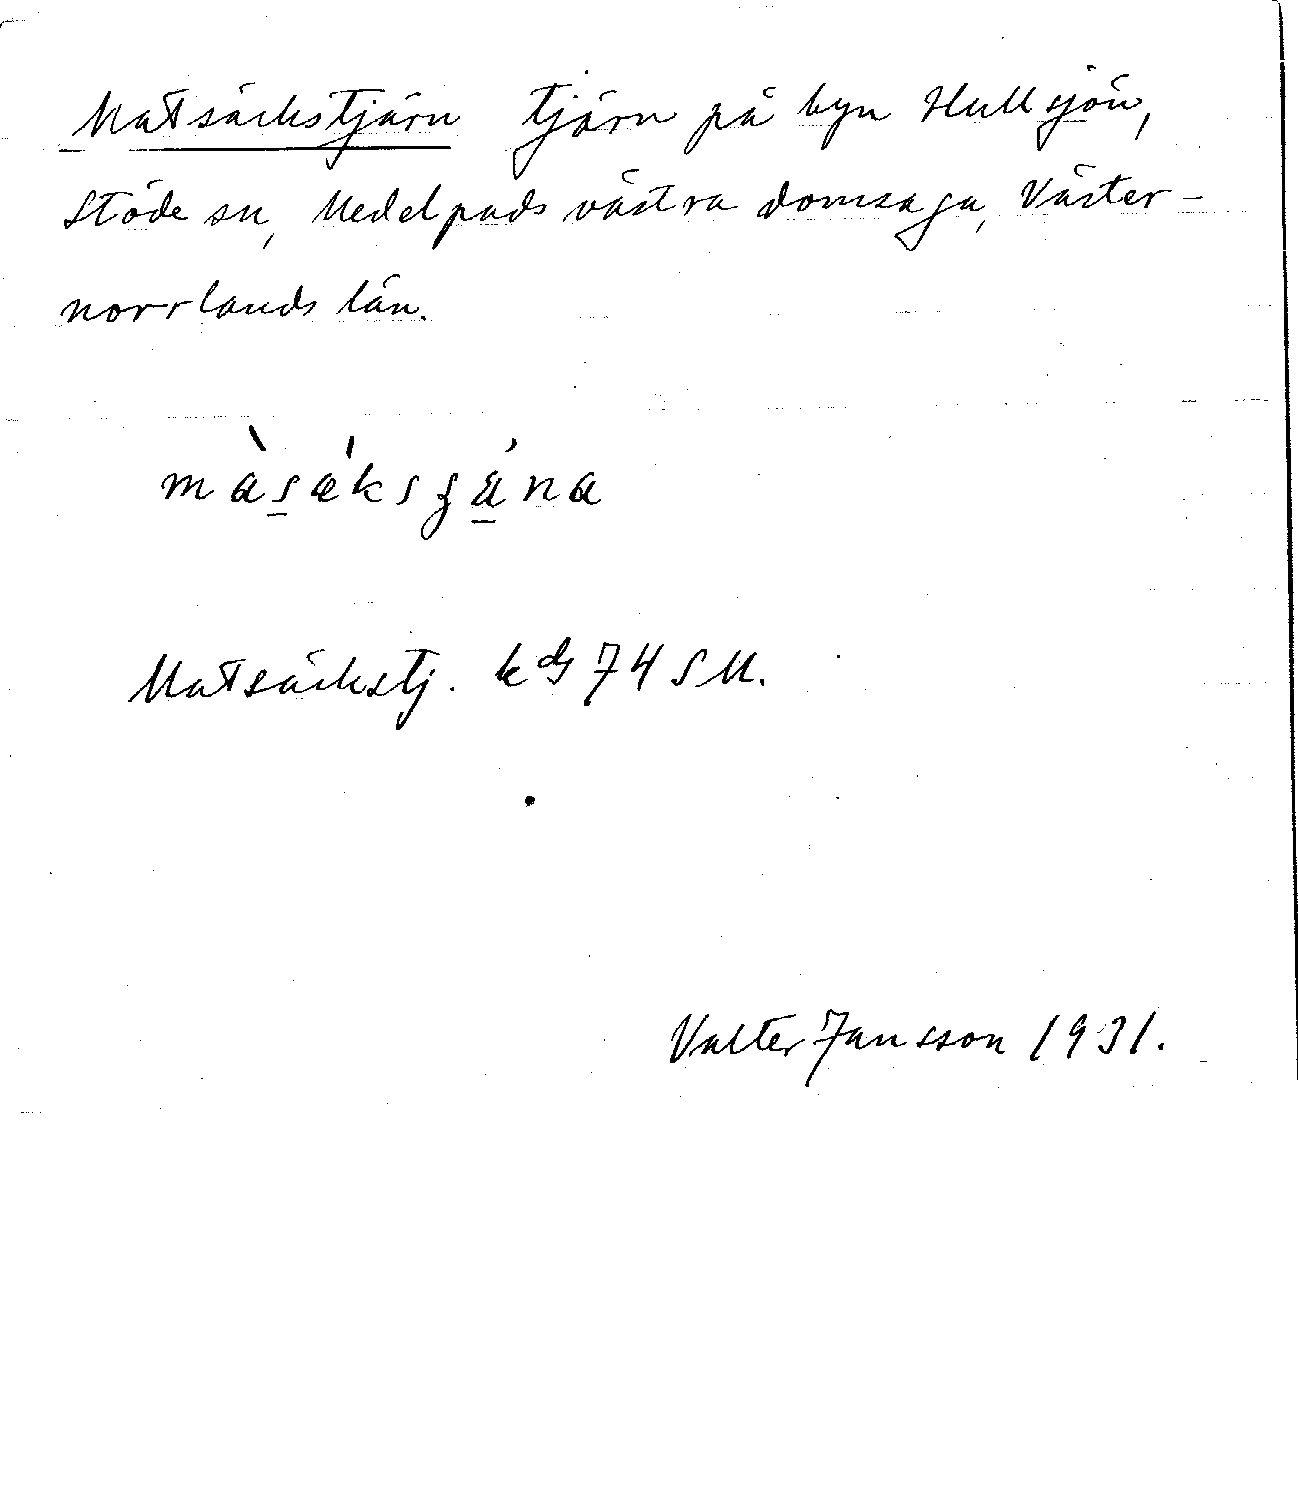 Matsäckstjärn tjärn på byn Hullsjön,
Stöde sn, Medelpads västra domsaga, Väster-
norrlands län.
màsǽksʒä́na
Matsäckstj. kds 74 SM.
Valter Jansson 1931.